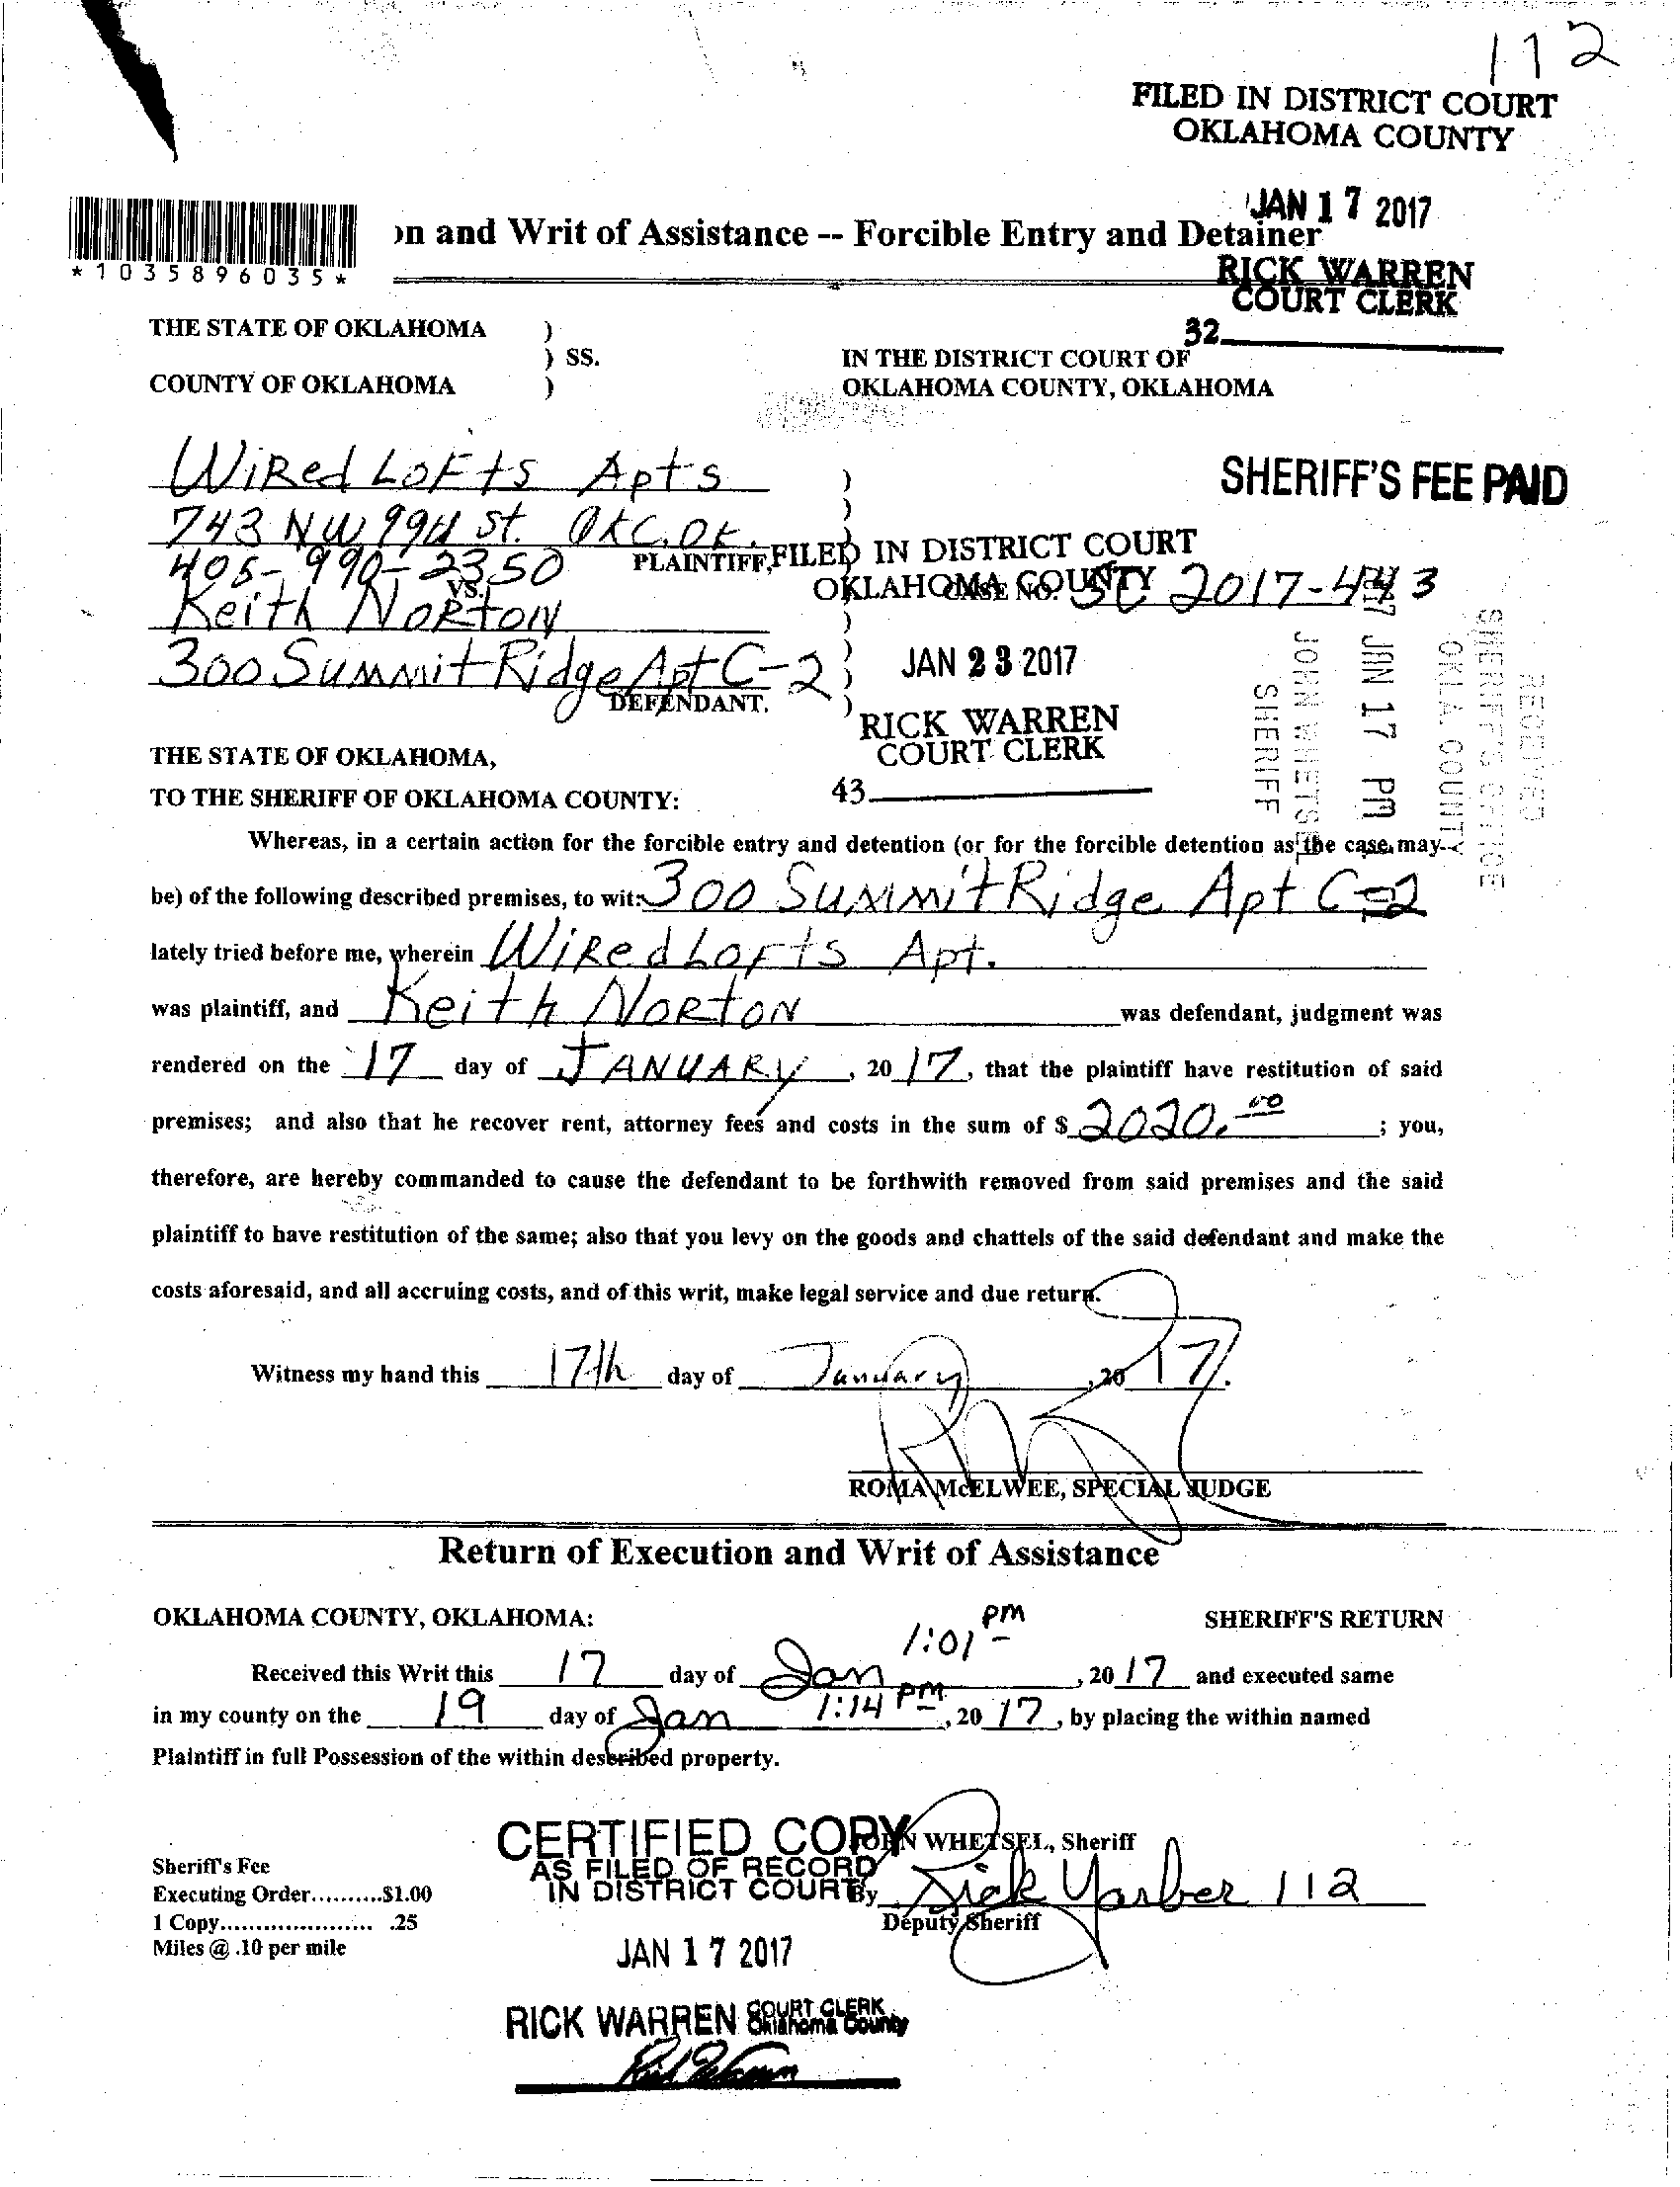 112
FILED IN DISTRICT COURT
OKLAHOMA COUNTY
JAN 17 2017
RICK WARREN
COURT CLERK
32
*1035896035*
n and Writ of Assistance -- Forcible Entry and Detainer
THE STATE OF OKLAHOMA )
) SS.
COUNTY OF OKLAHOMA )
IN THE DISTRICT COURT OF
OKLAHOMA COUNTY, OKLAHOMA
SHERIFF'S FEE PAID
Wired Lofts Apts
743 NW 99th St. OKC, OK.
405-990-2350 PLAINTIFF,
VS.
Keith Norton
300 Summit Ridge Apt C-2
DEFENDANT.
CASE NO. SC 2017-443
FILED IN DISTRICT COURT
OKLAHOMA COUNTY
JAN 23 2017
RICK WARREN
COURT CLERK
43
RECEIVED
SHERIFF'S OFFICE
OKLA. COUNTY
JAN 17 PM
JOHN WHETSEL
SHERIFF
THE STATE OF OKLAHOMA,
TO THE SHERIFF OF OKLAHOMA COUNTY:
Whereas, in a certain action for the forcible entry and detention (or for the forcible detention as the case may
be) of the following described premises, to wit: 300 Summit Ridge Apt C-2
lately tried before me, wherein Wired Lofts Apt.
was plaintiff, and Keith Norton was defendant, judgment was
rendered on the 17 day of JANUARY, 2017, that the plaintiff have restitution of said
premises; and also that he recover rent, attorney fees and costs in the sum of $ 2020.00; you,
therefore, are hereby commanded to cause the defendant to be forthwith removed from said premises and the said
plaintiff to have restitution of the same; also that you levy on the goods and chattels of the said defendant and make the
costs aforesaid, and all accruing costs, and of this writ, make legal service and due return.
Witness my hand this 17th day of January, 2017.
ROMA McELWEE, SPECIAL JUDGE
Return of Execution and Writ of Assistance
OKLAHOMA COUNTY, OKLAHOMA: SHERIFF'S RETURN
1:01 pm
Received this Writ this 17 day of Jan, 2017 and executed same
in my county on the 19 day of Jan 1:14 PM, 2017, by placing the within named
Plaintiff in full Possession of the within described property.
JOHN WHETSEL, Sheriff
By Rick Yarber 112
Deputy Sheriff
Sheriff's Fee
Executing Order..........$1.00
1 Copy..................... .25
Miles @ .10 per mile
CERTIFIED COPY
AS FILED OF RECORD
IN DISTRICT COURT
JAN 17 2017
RICK WARREN COURT CLERK
Oklahoma County